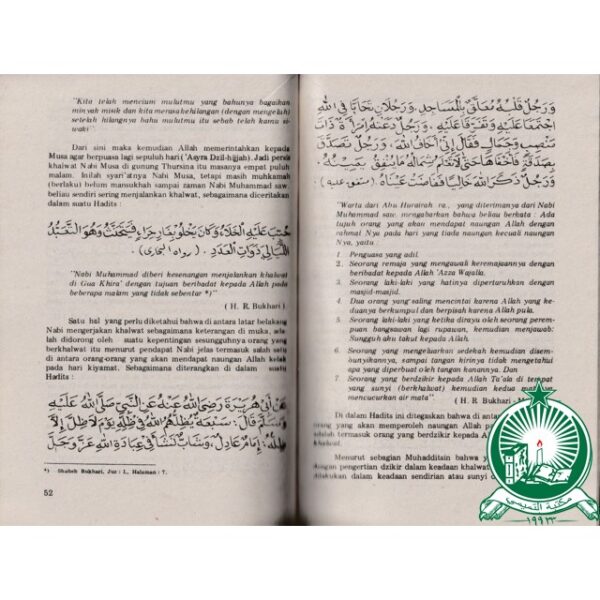 "Kita telah mencium mulutmu yang bahunya bagaikan
minyak misik dan kita merasa kehilangan (dengan mengeluh)
setelah hilangnya bahu mulutmu itu sebab telah kamu si-
waki"
Dari sini maka kemudian Allah memerintahkan kepada
Musa agar berpuasa lagi sepuluh hari ('Asyra Dzil-hijjah). Jadi persis
khalwat Nabi Musa di gunung Thursina itu masanya empat puluh
malam. Inilah syari'atnya Nabi Musa, tetapi masih muhkamah
(berlaku) belum mansukhah sampai zaman Nabi Muhammad saw.
beliau sendiri sering menjalankan khalwat, sebagaimana diceritakan
dalam suatu Hadits :
حُبِّبَ عَلَيْهِ الْخَلَاءُ وَكَانَ يَخْلُو بِغَارِ حِرَاءٍ فَيَتَحَنَّثُ وَهُوَ التَّعَبُّدُ
اللَّيَالِيَ ذَوَاتِ الْعَدَدِ . (رواه البخارى)
"Nabi Muhammad diberi kesenangan menjalankan khalwat
di Gua Khira' dengan tujuan beribadat kepada Allah pada
beberapa malam yang tidak sebentar *)"
( H. R. Bukhari ).
Satu hal yang perlu diketahui bahwa di antara latar belakang
Nabi mengerjakan khalwat sebagaimana keterangan di muka, ada-
lah didorong oleh suatu kepentingan sesungguhnya orang yang
berkhalwat itu menurut pendapat Nabi jelas termasuk salah satu
di antara orang-orang yang akan mendapat naungan Allah kelak
pada hari kiyamat. Sebagaimana diterangkan di dalam suatu
Hadits :
عَنْ أَبِي هُرَيْرَةَ رَضِيَ اللهُ عَنْهُ عَنِ النَّبِيِّ صَلَّى اللهُ عَلَيْهِ
وَسَلَّمَ قَالَ : سَبْعَةٌ يُظِلُّهُمُ اللهُ فِي ظِلِّهِ يَوْمَ لَا ظِلَّ إِلَّا
ظِلُّهُ : إِمَامٌ عَادِلٌ، وَشَابٌّ نَشَأَ فِي عِبَادَةِ اللهِ عَزَّ وَجَلَّ
*) Shaheh Bukhari, Juz : I., Halaman : 7.
52
وَرَجُلٌ قَلْبُهُ مُعَلَّقٌ بِالْمَسَاجِدِ، وَرَجُلَانِ تَحَابَّا فِي اللهِ
اجْتَمَعَا عَلَيْهِ وَتَفَرَّقَا عَلَيْهِ، وَرَجُلٌ دَعَتْهُ امْرَأَةٌ ذَاتُ
مَنْصِبٍ وَجَمَالٍ فَقَالَ إِنِّي أَخَافُ اللهَ، وَرَجُلٌ تَصَدَّقَ
بِصَدَقَةٍ فَأَخْفَاهَا حَتَّى لَا تَعْلَمَ شِمَالُهُ مَا يُنْفِقُ يَمِينُهُ
وَرَجُلٌ ذَكَرَ اللهَ خَالِيًا فَفَاضَتْ عَيْنَاهُ (متفق عليه)
"Warta dari Abu Hurairah ra., yang diterimanya dari Nabi
Muhammad saw. mengabarkan bahwa beliau berkata : Ada
tujuh orang yang akan mendapat naungan Allah dengan
rahmat Nya pada hari yang tiada naungan kecuali naungan
Nya, yaitu :
1. Penguasa yang adil.
2. Seorang remaja yang mengawali keremajaannya dengan
beribadat kepada Allah 'Azza Wajalla.
3. Seorang laki-laki yang hatinya dipertaruhkan dengan
masjid-masjid.
4. Dua orang yang saling mencintai karena Allah yang ke-
duanya berkumpul dan berpisah karena Allah pula.
5. Seorang laki-laki yang ketika dirayu oleh seorang perem-
puan bangsawan lagi rupawan, kemudian menjawab:
Sungguh aku takut kepada Allah.
6. Seorang yang mengeluarkan sedekah kemudian disem-
bunyikannya, sampai tangan kirinya tidak mengetahui
apa yang diperbuat oleh tangan kanannya. Dan
7. Seorang yang berdzikir kepada Allah Ta'ala di tempat
yang sunyi (berkhalwat) kemudian kedua
mencucurkan air mata"
( H. R Bukhari -
Di dalam Hadits ini ditegaskan bahwa di antara
yang akan memperoleh naungan Allah
adalah termasuk orang yang berdzikir kepada Allah
Menurut sebagian Muhadditsin bahwa
dengan pengertian dzikir dalam keadaan khalwat
dilakukan dalam keadaan sendirian atau sunyi
مكتبة التميمي
١٩٩٣